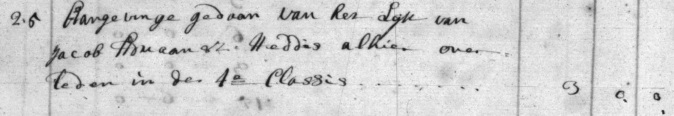 25 Aangevinge gedaan van het Lijk van
Jacob Adriaansz. Neddes alhier over
leden in de 4e Classis . . . . . . . 3 0 0